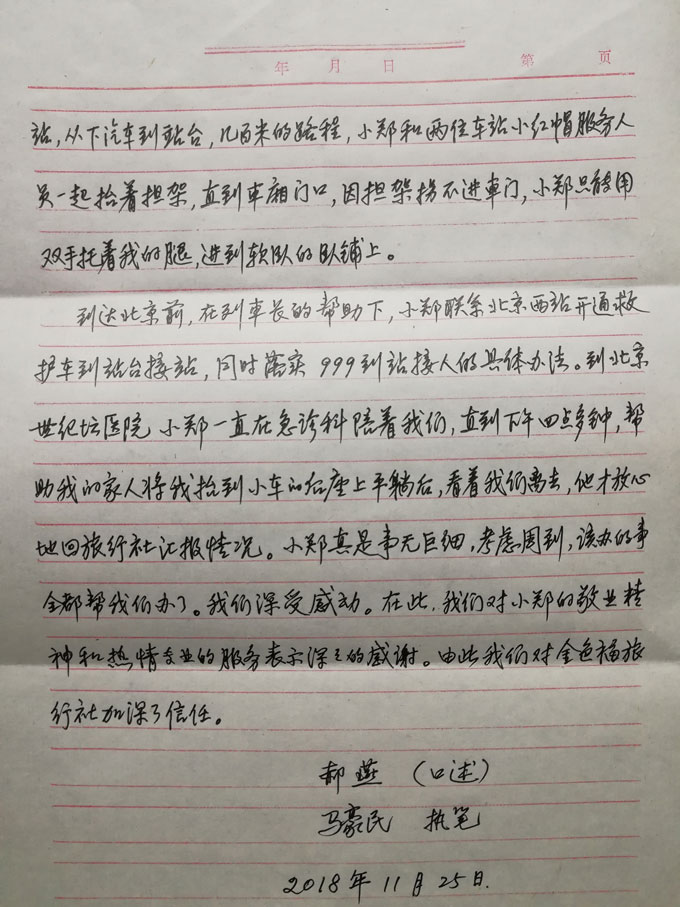 年 月 日 第 页
站，从下汽车到站台，几百米的路程，小郑和两位车站小红帽服务人
员一起抬着担架，直到車厢门口，因担架拐不进車门，小郑只能用
双手托着我的腿，进到软卧的卧铺上。
到达北京前，在列車长的帮助下，小郑联系北京西站开通救
护车到站台接站，同时落实 999到站接人的具体办法。到北京
世纪坛医院 小郑一直在急诊科陪着我们，直到下午四点多钟，帮
助我的家人将我抬到小车的后座上平躺后，看着我们离去，他才放心
地回旅行社汇报情况。小郑真是事无巨细，考虑周到，该办的事
全都帮我们办了。我们深受感动。在此，我们对小郑的敬业精
神和热情专业的服务表示深々的感谢。由此我们对金色福旅
行社加深了信任。
郝燕 （口述）
马豪民 执笔
2018年11月25日.